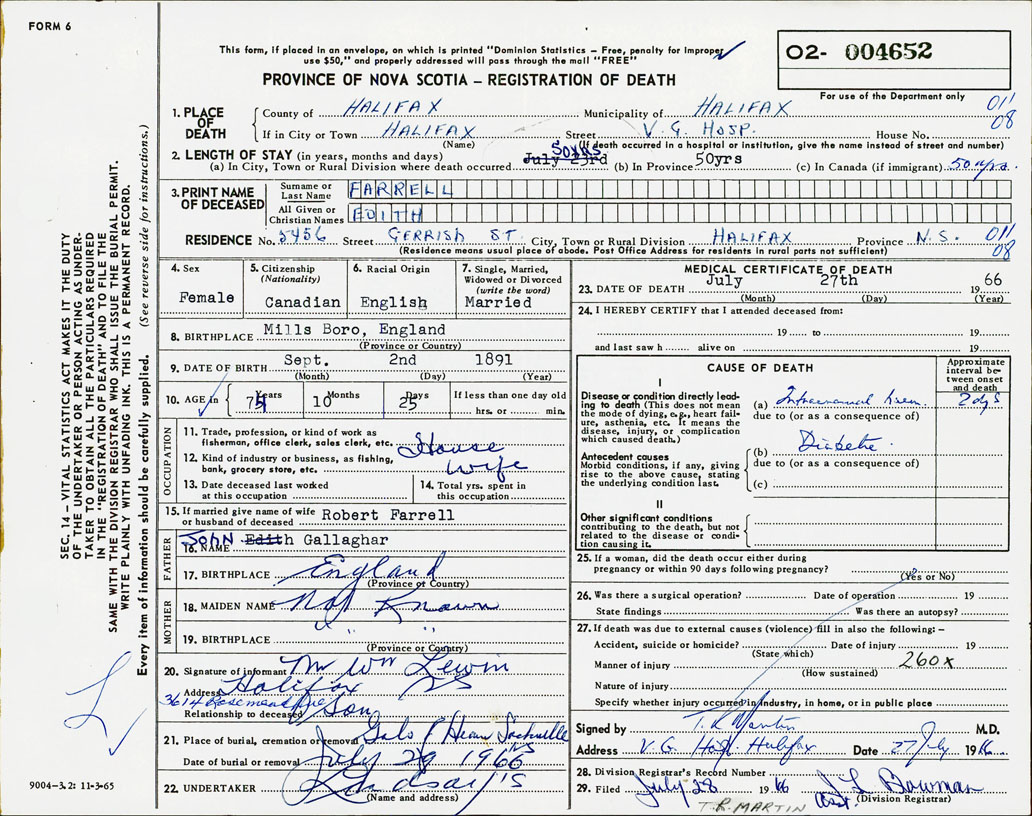 FORM 6
This form, if placed in an envelope, on which is printed "Dominion Statistics – Free, penalty for improper
use $50," and properly addressed will pass through the mail "FREE"
O2- 004652
PROVINCE OF NOVA SCOTIA – REGISTRATION OF DEATH
For use of the Department only
1. PLACE OF DEATH
County of HALIFAX Municipality of HALIFAX 011
If in City or Town HALIFAX Street V.G. HOSP. House No. 08
(Name) (If death occurred in a hospital or institution, give the name instead of street and number)
2. LENGTH OF STAY (in years, months and days) 50yrs
(a) In City, Town or Rural Division where death occurred July 23rd (b) In Province 50yrs (c) In Canada (if immigrant) 50 yrs.
3. PRINT NAME OF DECEASED
Surname or Last Name FARRELL
All Given or Christian Names EDITH
RESIDENCE No. 5456 Street GERRISH ST. City, Town or Rural Division HALIFAX Province N.S. 011
(Residence means usual place of abode. Post Office Address for residents in rural parts not sufficient) 08
4. Sex
Female
5. Citizenship
(Nationality)
Canadian
6. Racial Origin
English
7. Single, Married,
Widowed or Divorced
(write the word)
Married
8. BIRTHPLACE Mills Boro, England
(Province or Country)
9. DATE OF BIRTH Sept. 2nd 1891
(Month) (Day) (Year)
10. AGE in Years Months Days If less than one day old
10 25 hrs. or min.
OCCUPATION
11. Trade, profession, or kind of work as
fisherman, office clerk, sales clerk, etc. House
12. Kind of industry or business, as fishing,
bank, grocery store, etc. wife
13. Date deceased last worked
at this occupation
14. Total yrs. spent in
this occupation
15. If married give name of wife
or husband of deceased Robert Farrell
FATHER
16. NAME JOHN Edith Gallaghar
17. BIRTHPLACE England
(Province or Country)
MOTHER
18. MAIDEN NAME Not Known
19. BIRTHPLACE " "
(Province or Country)
20. Signature of informant Mr Wm Lewin
Address Halifax NS
3614 Rosemead Ave
Relationship to deceased Son
21. Place of burial, cremation or removal
Date of burial or removal July 29 1966
22. UNDERTAKER Lindsay's
(Name and address)
MEDICAL CERTIFICATE OF DEATH
23. DATE OF DEATH July 27th 1966
(Month) (Day) (Year)
24. I HEREBY CERTIFY that I attended deceased from:
19 to 19
and last saw h alive on 19
CAUSE OF DEATH
Approximate
interval be-
tween onset
and death
I
Disease or condition directly lead-
ing to death (This does not mean
the mode of dying, e.g., heart fail-
ure, asthenia, etc. It means the
disease, injury, or complication
which caused death.)
(a) 2 dys
due to (or as a consequence of)
Antecedent causes
Morbid conditions, if any, giving
rise to the above cause, stating
the underlying condition last.
(b) Diabetic
due to (or as a consequence of)
(c)
II
Other significant conditions
contributing to the death, but not
related to the disease or condi-
tion causing it.
25. If a woman, did the death occur either during
pregnancy or within 90 days following pregnancy?
(Yes or No)
26. Was there a surgical operation? Date of operation 19
State findings Was there an autopsy?
27. If death was due to external causes (violence) fill in also the following: –
Accident, suicide or homicide? Date of injury 19
(State which)
Manner of injury 260X
(How sustained)
Nature of injury
Specify whether injury occurred in industry, in home, or in public place
Signed by T. R. Martin M.D.
Address V.G. Hosp. Halifax Date 27 July 1966
28. Division Registrar's Record Number
29. Filed July 28 1966 J L Bowman
Asst. (Division Registrar)
T.R. MARTIN
SEC. 14 – VITAL STATISTICS ACT MAKES IT THE DUTY
OF THE UNDERTAKER OR PERSON ACTING AS UNDER-
TAKER TO OBTAIN ALL THE PARTICULARS REQUIRED
IN THE "REGISTRATION OF DEATH" AND TO FILE THE
SAME WITH THE DIVISION REGISTRAR WHO SHALL ISSUE THE BURIAL PERMIT.
WRITE PLAINLY WITH UNFADING INK. THIS IS A PERMANENT RECORD.
Every item of information should be carefully supplied. (See reverse side for instructions.)
9004-3.2: 11-3-65